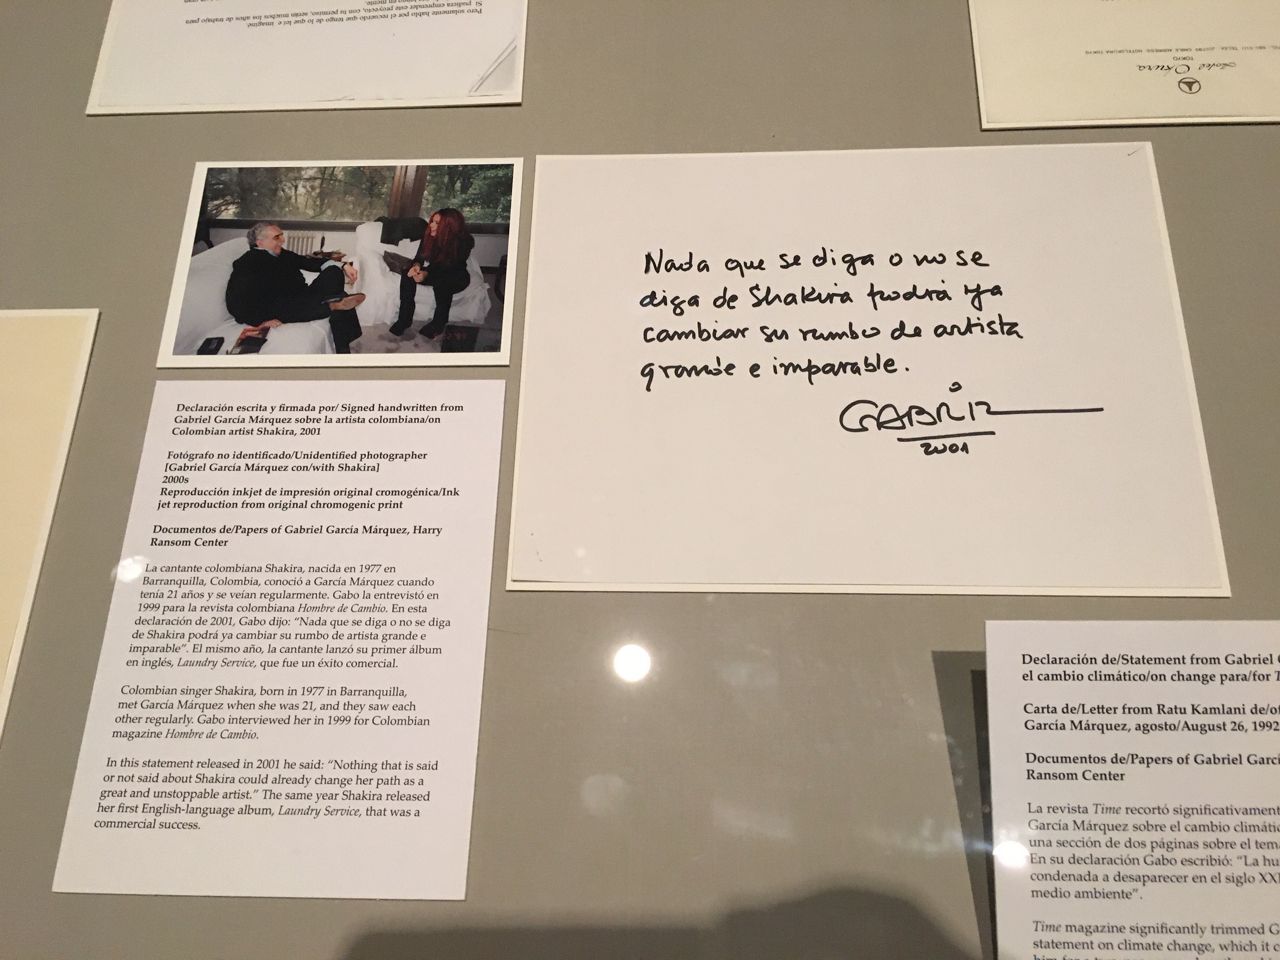 Pero solamente hablo por el recuerdo que tengo de lo que leí e imaginé.
Si pudiera emprender este proyecto, con tu permiso, serán muchos los años de trabajo para
TOKYO
Hotel Okura
Nada que se diga o no se
diga de Shakira podrá ya
cambiar su rumbo de artista
grande e imparable.
GABRIEL
2001
Declaración escrita y firmada por/ Signed handwritten from
Gabriel García Márquez sobre la artista colombiana/on
Colombian artist Shakira, 2001
Fotógrafo no identificado/Unidentified photographer
[Gabriel García Márquez con/with Shakira]
2000s
Reproducción inkjet de impresión original cromogénica/Ink
jet reproduction from original chromogenic print
Documentos de/Papers of Gabriel García Márquez, Harry
Ransom Center
La cantante colombiana Shakira, nacida en 1977 en
Barranquilla, Colombia, conoció a García Márquez cuando
tenía 21 años y se veían regularmente. Gabo la entrevistó en
1999 para la revista colombiana Hombre de Cambio. En esta
declaración de 2001, Gabo dijo: “Nada que se diga o no se diga
de Shakira podrá ya cambiar su rumbo de artista grande e
imparable”. El mismo año, la cantante lanzó su primer álbum
en inglés, Laundry Service, que fue un éxito comercial.
Colombian singer Shakira, born in 1977 in Barranquilla,
met García Márquez when she was 21, and they saw each
other regularly. Gabo interviewed her in 1999 for Colombian
magazine Hombre de Cambio.
In this statement released in 2001 he said: “Nothing that is said
or not said about Shakira could already change her path as a
great and unstoppable artist.” The same year Shakira released
her first English-language album, Laundry Service, that was a
commercial success.
Declaración de/Statement from Gabriel
el cambio climático/on change para/for
Carta de/Letter from Ratu Kamlani de/
García Márquez, agosto/August 26, 1992
Documentos de/Papers of Gabriel
Ransom Center
La revista Time recortó
García Márquez sobre el cambio
una sección de dos páginas sobre el
En su declaración Gabo escribió: “La
condenada a desaparecer en el siglo
medio ambiente”.
Time magazine significantly trimmed
statement on climate change, which it